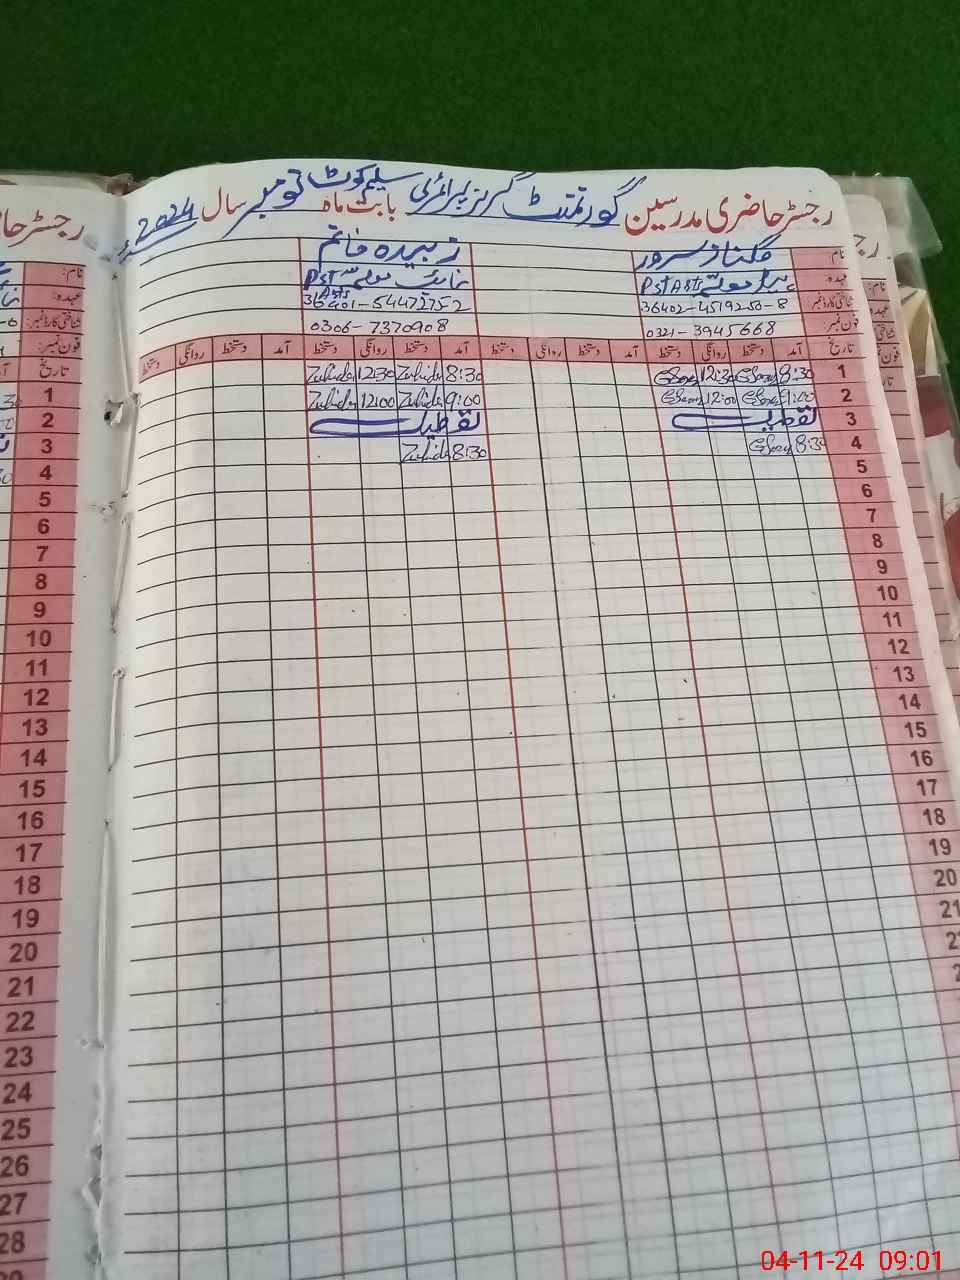 رجسٹر حاضری مدرسین گورنمنٹ گرلز پرائمری سلیم کوٹ بابت ماہ نومبر سال 2024ء
نام: گلناز سرور زبیدہ خانم
عہدہ: ہیڈ معلمہ PST Arts نائب معلمہ PST Arts
شناختی کارڈ نمبر: 36402-4519250-8 36401-5447275-2
فون نمبر: 0321-3945668 0306-7370908
تاریخ آمد دستخط روانگی دستخط آمد دستخط روانگی دستخط آمد دستخط روانگی دستخط آمد دستخط روانگی دستخط
1 8:30 12:30 8:30 Zubida 12:30 Zubida
2 9:00 12:00 9:00 Zubida 12:00 Zubida
3 تعطیل تعطیل
4 8:30 8:30 Zubida
5
6
7
8
9
10
11
12
13
14
15
16
17
18
19
20
21
رجسٹر حا
نام:
عہدہ:
شناختی کارڈ نمبر:
فون نمبر:
تاریخ
1
2
3
4
5
6
7
8
9
10
11
12
13
14
15
16
17
18
19
20
21
22
23
24
25
26
27
28
04-11-24 09:01